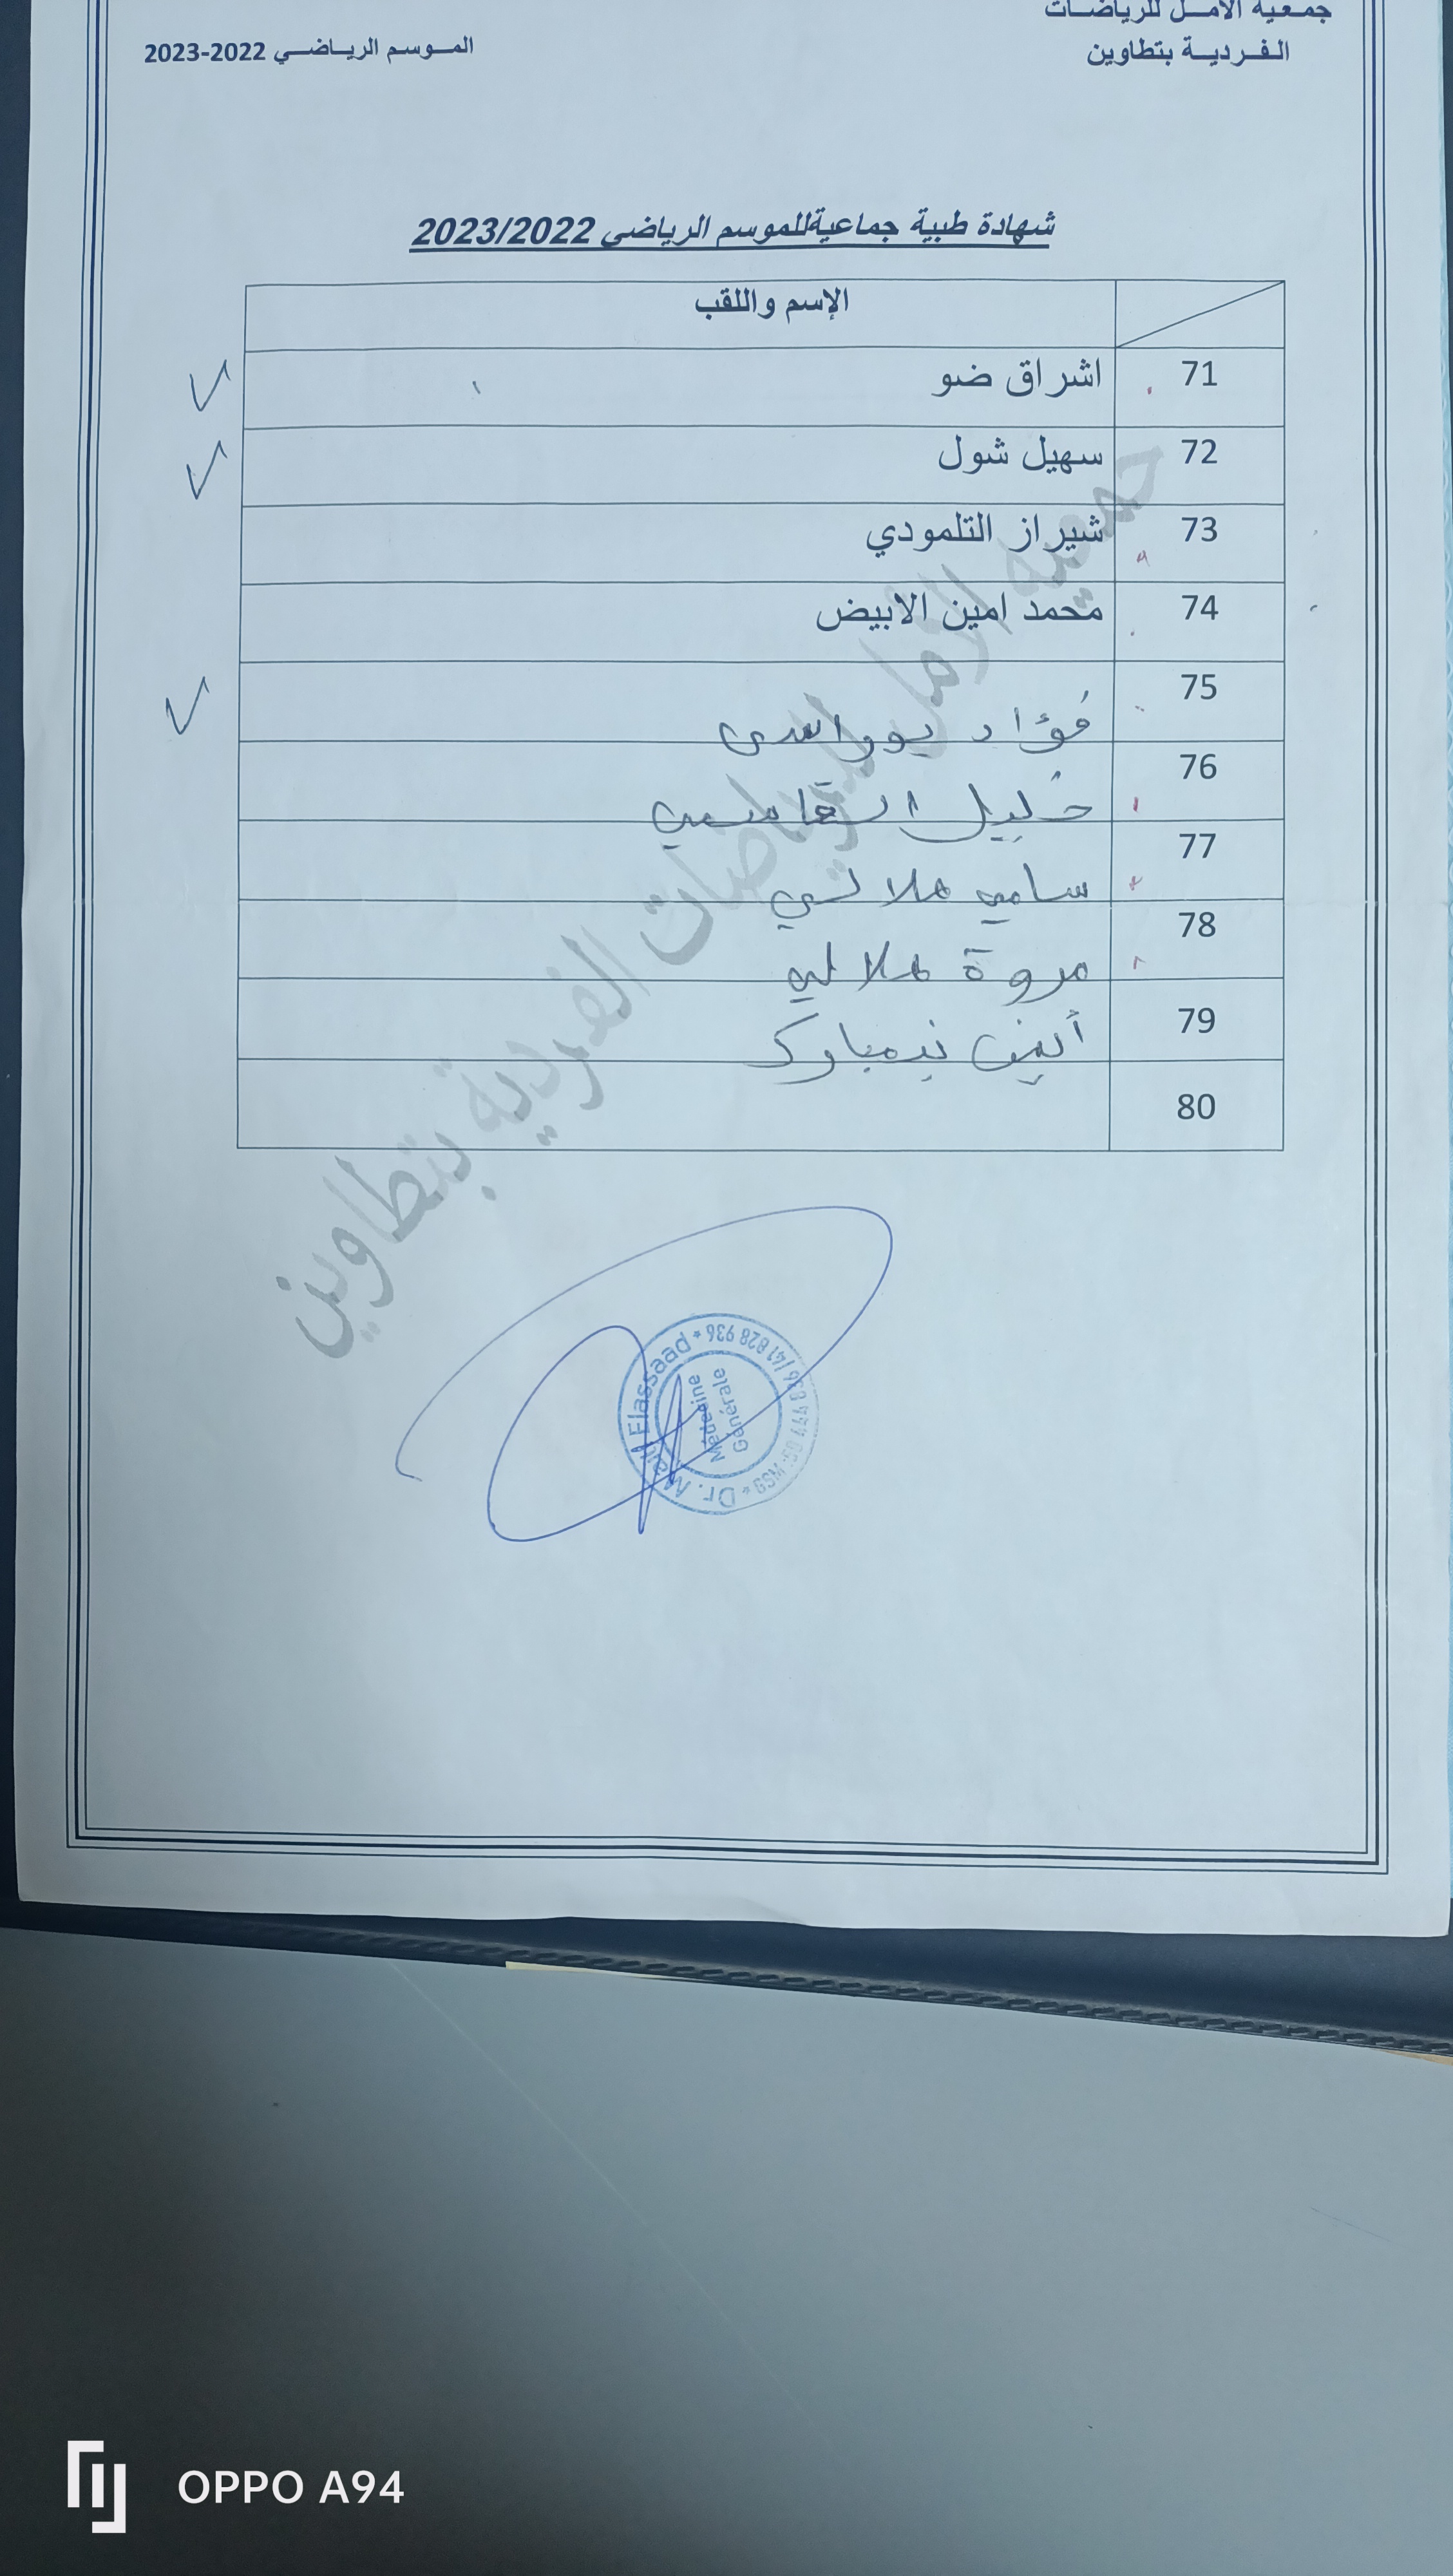 جمعية الأمل للرياضات
الفردية بتطاوين
الموسم الرياضي 2022-2023
شهادة طبية جماعيةللموسم الرياضي 2023/2022
الإسم واللقب
71 اشراق ضو
72 سهيل شول
73 شيراز التلمودي
74 محمد امين الابيض
75 فؤاد
76 خليل القاسمي
77 سامي هلالي
78 مروة هلالي
79 أمين بنمبارك
80
جمعية الأمل للرياضات الفردية بتطاوين
Dr. Elassaad
Médecine
Générale
GSM: 41 828 936
OPPO A94